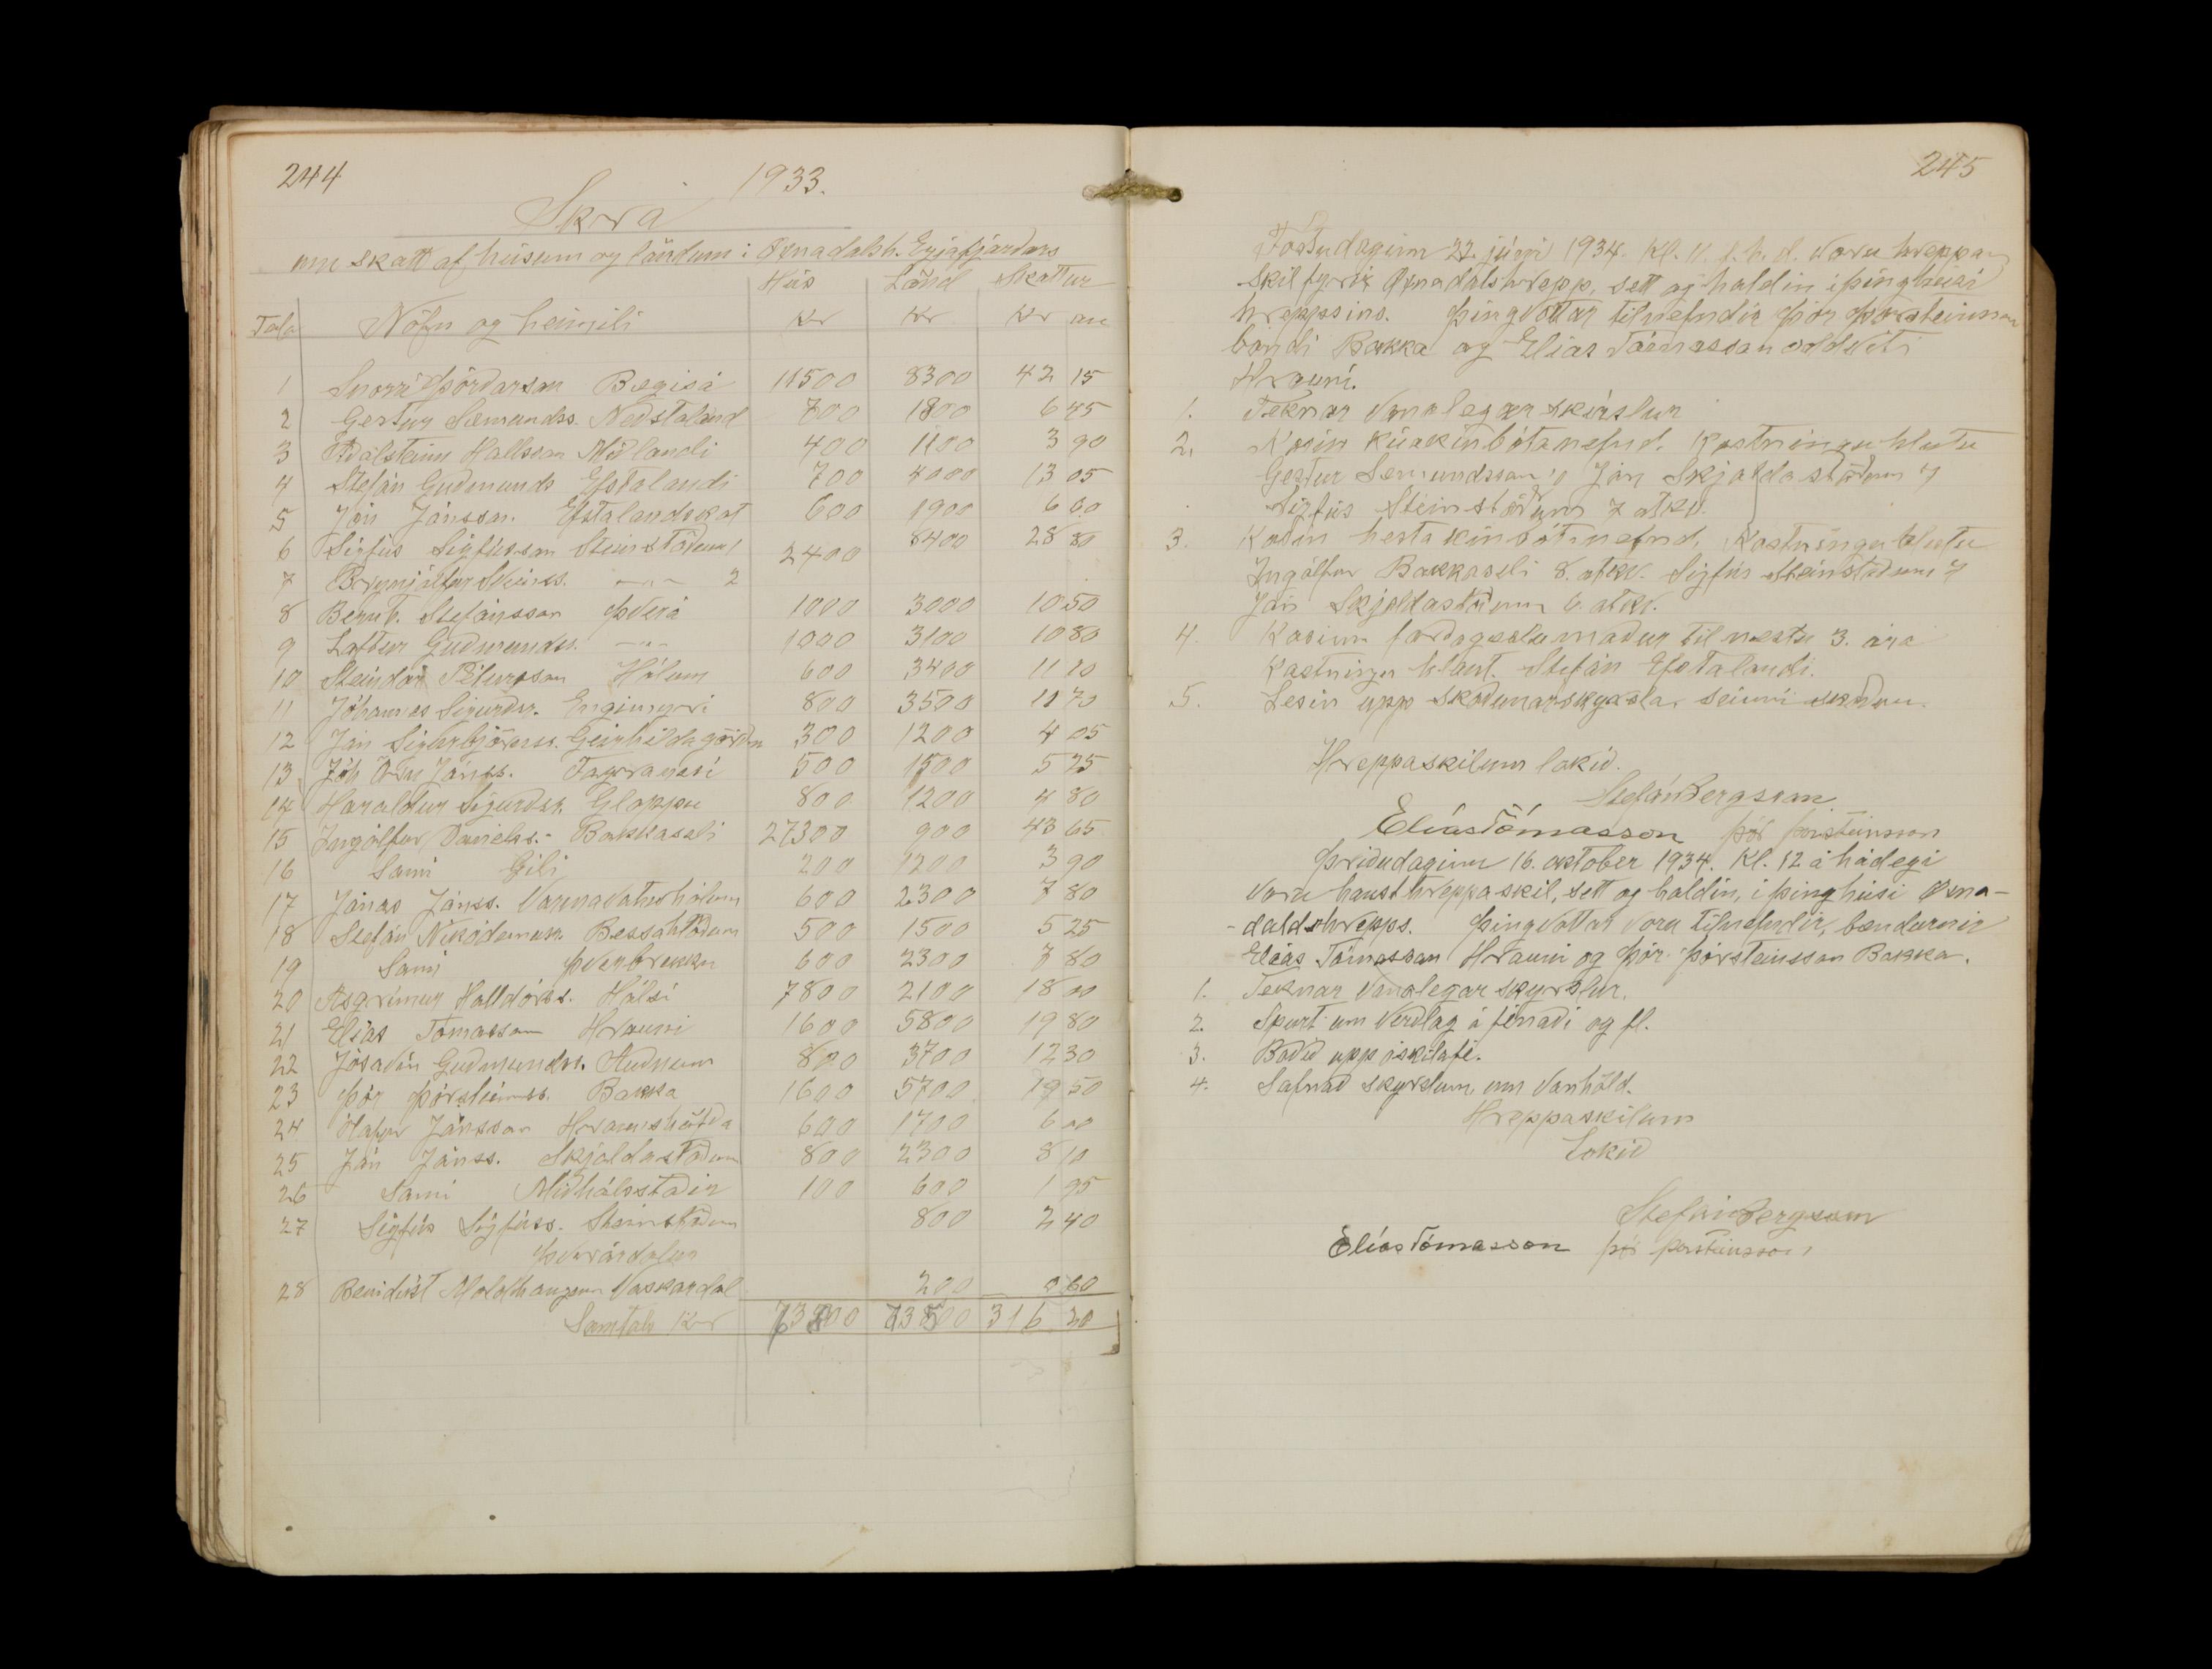 244
1933.
Skrá
um skatt af húsum og löndum í Öxnadalsh. Eyjafjarðars
Tala Nöfn og heimili Hús Kr Lönd Kr Skattur Kr au
1 Snorri Þórðarson Bægisá 11500 8300 42 15
2 Gestur Sæmundss. Neðstaland 700 1800 6 45
3 Aðalsteinn Hallsson Miðlandi 400 1100 3 90
4 Stefán Guðmunds Efstalandi 700 4000 13 05
5 Jón Jónsson. Efstalandskot 600 1900 6 60
6 Sigfús Sigfússon Steinstöðum 1 2400 8400 28 80
7 Brynjólfur Sveinss. —"— 2
8 Bernh. Stefánsson Þverá 1000 3000 10 50
9 Loftur Guðmunds. —"— 1000 3100 10 80
10 Steindór Pétursson Hólum 600 3400 11 10
11 Jóhannes Sigurðs. Engimýri 800 3500 11 70
12 Jón Sigurbjörnss. Geirhildagörðum 300 1200 4 05
13 Jóh Örn Jónss. Fagranesi 500 1500 5 25
14 Haraldur Sigurðss. Gloppu 800 1200 4 80
15 Ingólfur Daníelss. Bakkaseli 27300 900 43 65
16 Sami Gili 200 1200 3 90
17 Jónas Jónss. Varmavatnshólum 600 2300 7 80
18 Stefán Nikódemuss. Bessahlöðum 500 1500 5 25
19 Sami Þverbrekku 600 2300 7 80
20 Ásgrímur Halldórss. Hálsi 7800 2100 18 00
21 Elías Tómasson Hrauni 1600 5800 19 80
22 Jósavin Guðmundss. Auðnum 800 3700 12 30
23 Þór Þórsteinss. Bakka 1600 5700 19 50
24 Hafur Jónsson Hraunshöfða 600 1700 6 00
25 Jón Jónss. Skjaldastöðum 800 2300 8 10
26 Sami Miðhálsstaðir 100 600 1 95
27 Sigfús Sigfúss. Steinstöðum 800 2 40
Þverárdalur
28 Benidikt Moldhaugum Vaskárdal 200 0 60
Samtals Kr 316 20
245
Föstudaginn 22. júni 1934. Kl. 11. f. h. d. voru hreppa
skil fyrir Öxnadalshrepp, sett og haldin í þinghúsi
hreppsins. Þingvottar tilnefndir Þór Þorsteinsson
bóndi Bakka og Elías Tómasson oddviti
Hrauni.
1. Teknar vanalegar skírslur
2. Kosin kúakinbótanefnd. Kostningu hlutu
Gestur Semundsson Jón Skjaldastöðum 7
Sigfús Steinstöðum 7 atkv.
3. Kosin hestakinbótanefnd, Kostningu hlutu
Ingólfur Bakkaseli 8. atkv. Sigfús Steinstöðum 7
Jón Skjaldastöðum 6. atkv.
4. Kosinn forðagæslumaður til næstu 3. ára
Kostningu hlaut. Stefán Efstalandi.
5. Lesin upp skoðunarskyrsla, seinni skoðun.
Hreppaskilum lokið.
Stefán Bergsson
Elías Tómasson Þór Þorsteinsson
Þriðudaginn 16. október 1934. Kl. 12 á hádegi
voru hausthreppaskil, sett og haldin, í þinghúsi Öxna-
-daldshrepps. Þingvottar voru tilnefndir, bændurnir
Elías Tómasson Hrauni og Þór Þórsteinsson Bakka.
1. Teknar vanalegar skyrslur.
2. Spurt um verðlag á fénaði og fl.
3. Boðið upp óskilafé.
4. Safnað skyrslum, um vanhöld.
Hreppaskilum
Lokið
Stefán Bergsson
Elías Tómasson Þór Þorsteinsson